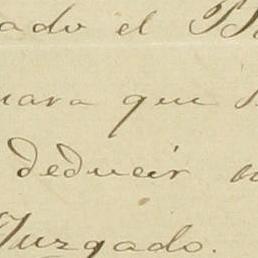 ado el
para que
deducir
Juzgado.